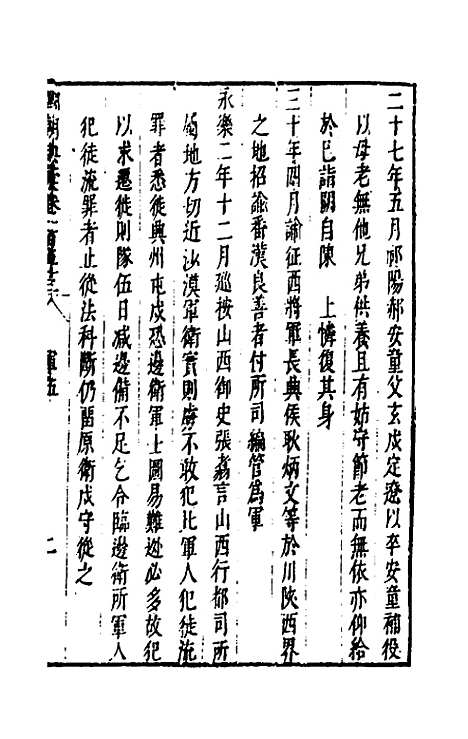 二十七年五月祁陽郝安童父玄戍定遼以卒安童補役
以母老無他兄弟供養且有姑守節老而無依亦仰給
於已詣闕自陳　上憐復其身
三十年四月諭征西將軍長興侯耿炳文等於川陝西界
之地招諭番漢良善者付所司編管為軍
永樂二年十二月巡按山西御史張翥言山西行都司所
屬地方切近沙漠軍衛實則虜不敢犯比軍人犯徒流
罪者悉徙興州屯戍恐邊衛軍士圖易難逊必多故犯
以求遷徙則隊伍日减邊備不足乞令臨邊衛所軍人
犯徒流罪者止從法科斷仍留原衛戍守從之
軍五
二